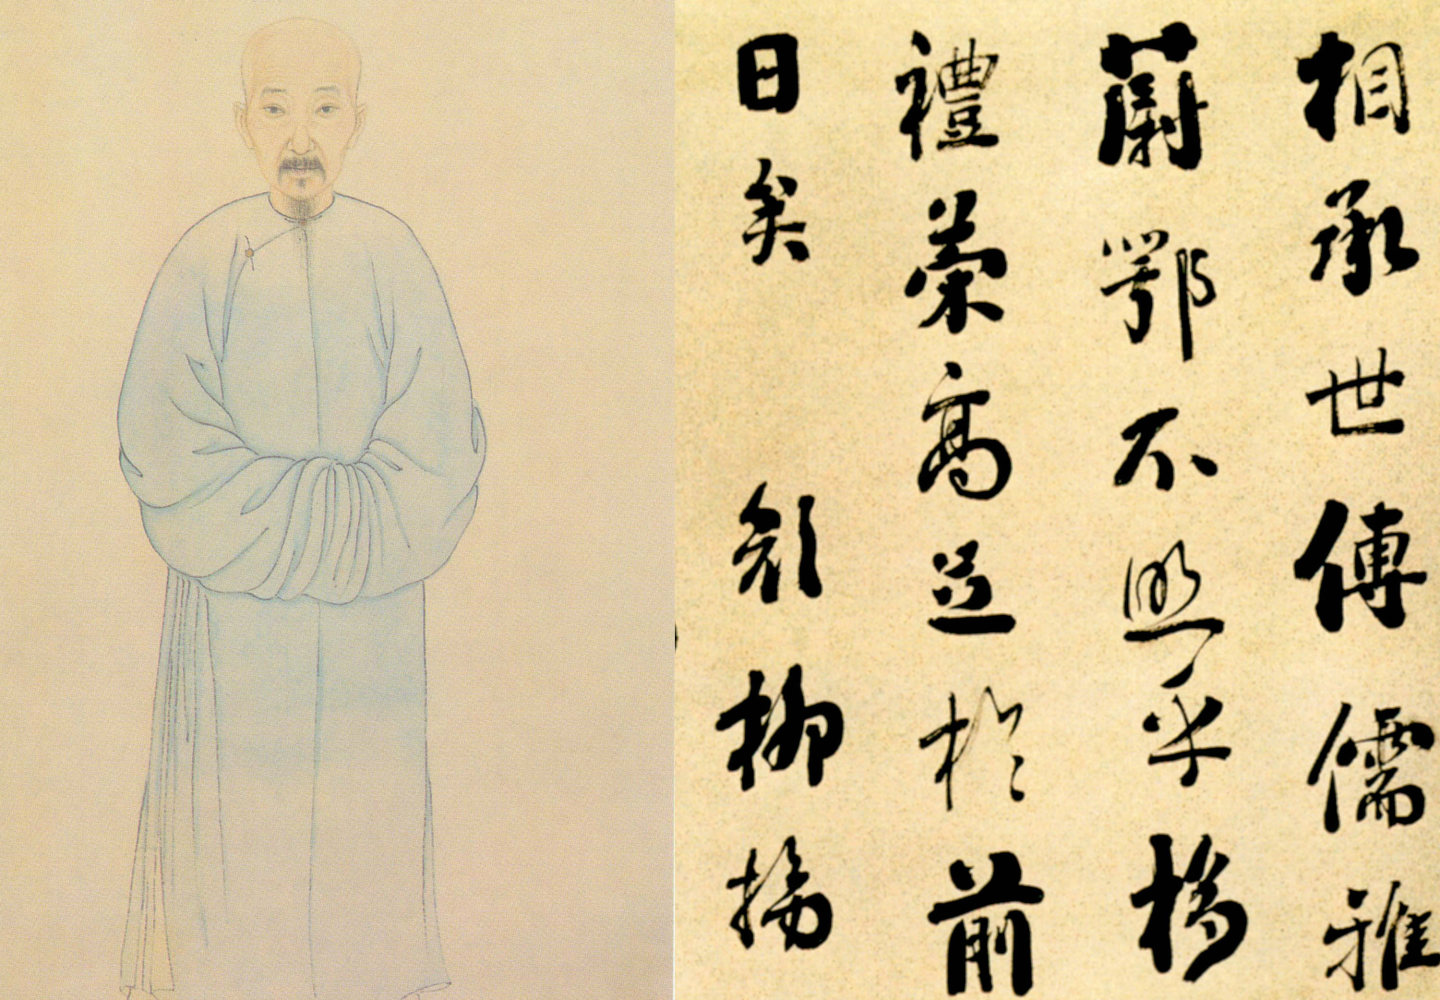 相承世傳儒雅
蔚鄂不照乎橋
禮榮高並於前
日矣 顏柳揚